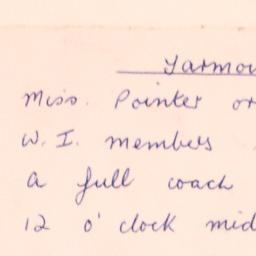 Yarmou
Miss. Pointer or
W. I. members
a full coach
12 o' clock mid